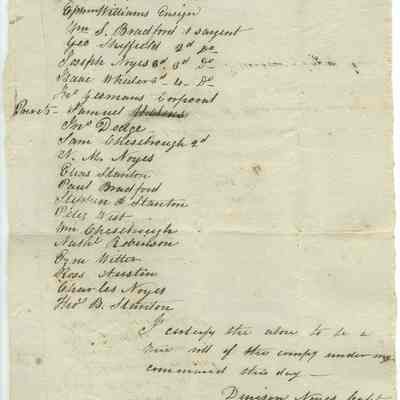 Ephm Williams Ensign
Wm S. Bradford 1 sargent
Geo Sheffield 2d do
Joseph Noyes 3d 3d Do
Isaac Wheeler 2d 4 Do
Jno Yeomans Corporal
Privets Samuel
Jno Dodge
Sam Chesebrough 2d
N. M. Noyes
Elias Stanton
Paul Bradford
Stephen Stanton
Peleg West
Wm Chesebrough
Nathl Robinson
Ezra Witter
Ross Austin
Charles Noyes
Theo B. Stanton
I certefy the above to be a
true roll of the compy under my
command this day —
Denison Noyes Capt